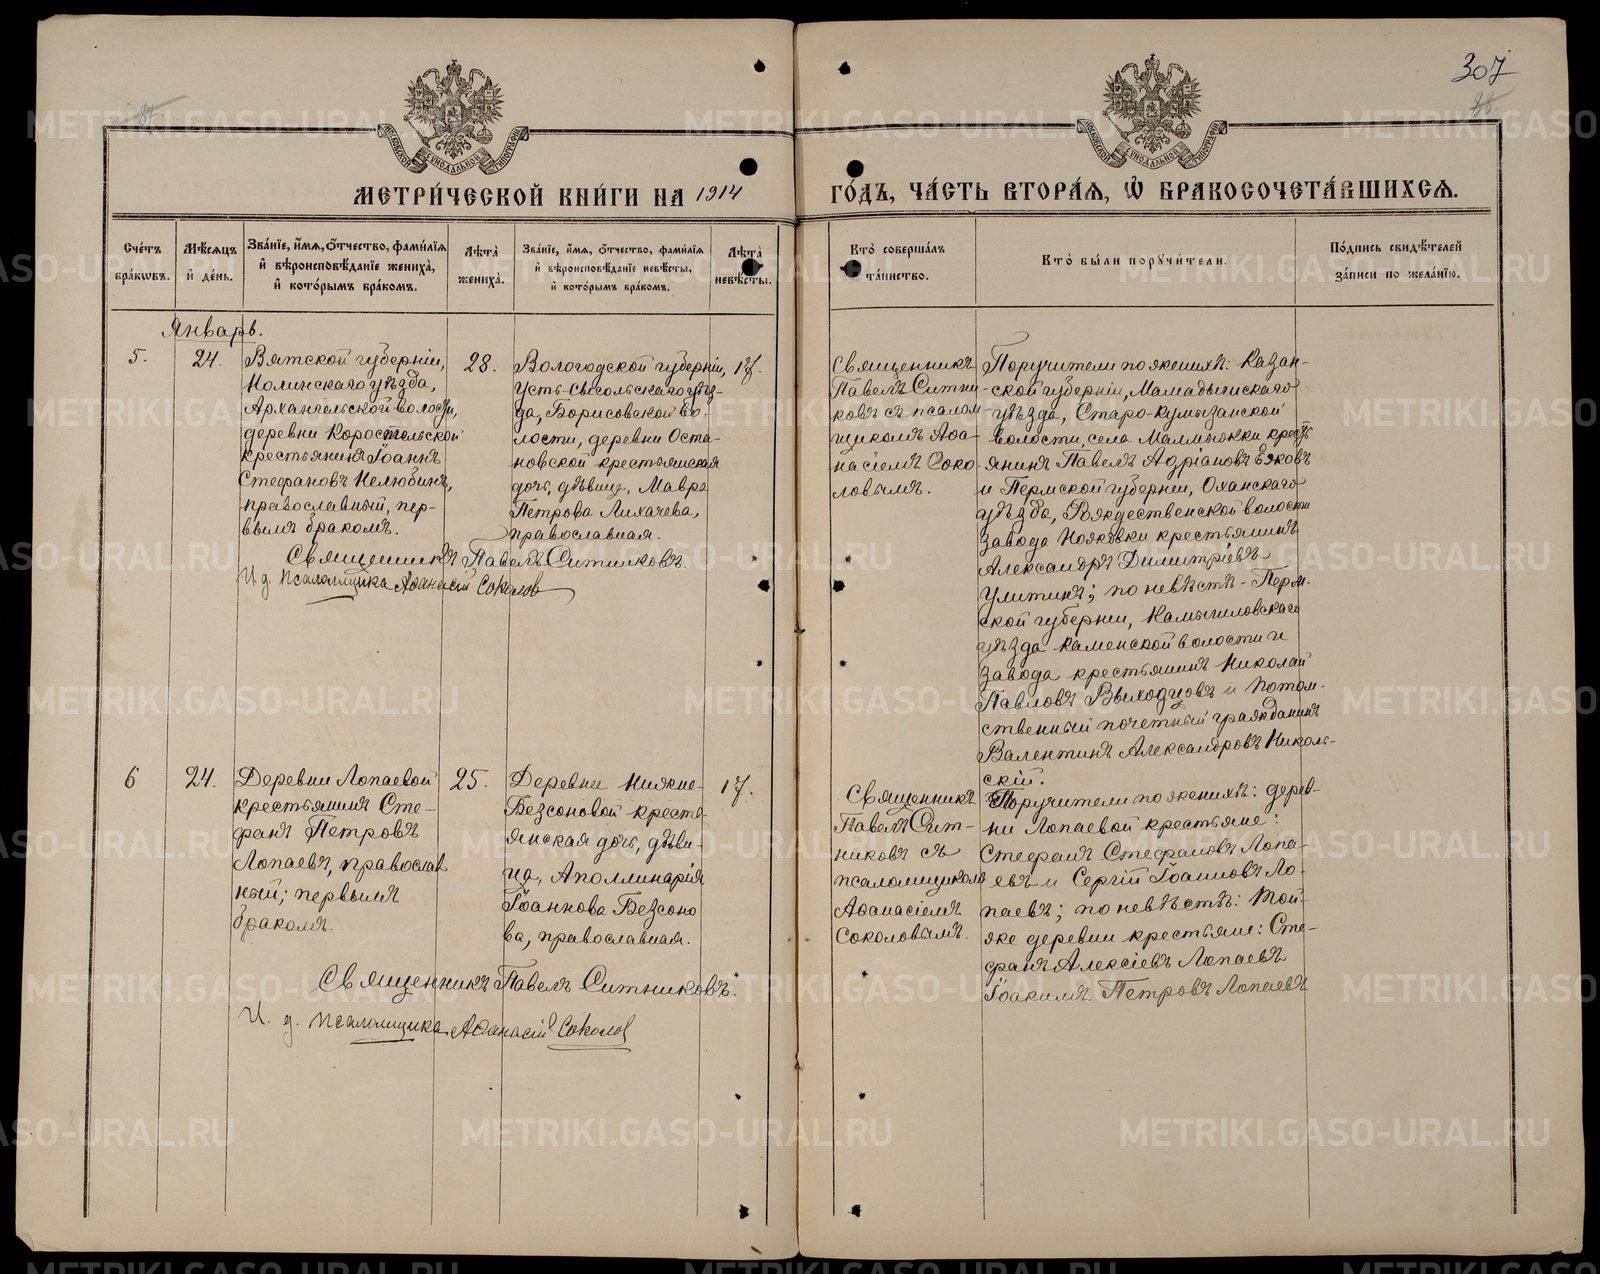 307
87.
88.
МЕТРИ́ЧЕСКОЙ КНИ́ГИ НА 1914 ГО́ДЪ, ЧА́СТЬ ВТОРА́Ѧ, Ѽ БРАКОСОЧЕТА́ВШИХСѦ.
Сче́тъ бра́кѡвъ.
Мѣ́сѧцъ и҆ де́нь.
Зва́нїе, и҆́мѧ, ѻ҆́тчество, фами́лїѧ
и҆ вѣроисповѣ́данїе жениха̀,
и҆ кото́рымъ бра́комъ.
Лѣта̀ жениха̀.
Зва́нїе, и҆́мѧ, ѻ҆́тчество, фами́лїѧ
и҆ вѣроисповѣ́данїе невѣ́сты,
и҆ кото́рымъ бра́комъ.
Лѣта̀ невѣ́сты.
Кто̀ соверша́лъ та́инство.
Кто̀ бы́ли порꙋчи́тели.
По́дпись свидѣ́телей
за́писи по жела́нїю.
Январь.
5.
24.
Вятской губерніи,
Нолинскаго уѣзда,
Архангельской волости,
деревни Коростельской
крестьянинъ Іоаннъ
Стефановъ Нелюбинъ,
православный, пер-
вымъ бракомъ.
28.
Вологодской губерніи,
Усть-Сысольскаго уѣз-
да, Борисовской во-
лости, деревни Оста-
новской крестьянская
дочь, дѣвица, Мавра
Петрова Лихачева,
православная.
17.
Священникъ
Павелъ Ситни-
ковъ съ псалом-
щикомъ Аѳа-
насіемъ Соко-
ловымъ.
Поручители по женихѣ: Казан-
ской губерніи, Мамадышскаго
уѣзда, Старо-Кумызанской
волости, села Малмыжки кресть
янинъ Павелъ Адріановъ Ежовъ
и Пермской губерніи, Оханскаго
уѣзда, Рождественской волости
завода Ножовки крестьянинъ
Александръ Димитріевъ
Улитинъ; по невѣстѣ - Перм-
ской губерніи, Камышловскаго
уѣзда Каменской волости и
завода крестьянинъ Николай
Павловъ Выходцовъ и потом-
ственный почетный гражданинъ
Валентинъ Александровъ Николь-
скій.
Священникъ Павелъ Ситниковъ.
И. д. псаломщика Аѳанасій Соколов
6
24.
Деревни Лопаевой
крестьянинъ Сте-
фанъ Петровъ
Лопаевъ, православ
ный; первымъ
бракомъ.
25.
Деревни Нижне-
Безсоновой кресть-
янская дочь, дѣви-
ца, Аполлинарія
Іоаннова Безсоно
ва, православная.
17.
Священникъ
Павелъ Сит-
никовъ съ
псаломщикомъ
Аѳанасіемъ
Соколовымъ.
Поручители по женихѣ: дерев-
ни Лопаевой крестьяне:
Стефанъ Стефановъ Лопа-
евъ и Сергій Іоанновъ Ло-
паевъ; по невѣстѣ: той-
же деревни крестьяне: Сте-
фанъ Алексіевъ Лопаевъ
Іоакимъ Петровъ Лопаевъ
Священникъ Павелъ Ситниковъ.
И. д. псаломщика Аѳанасій Соколов
METRIKI.GASO-URAL.RU